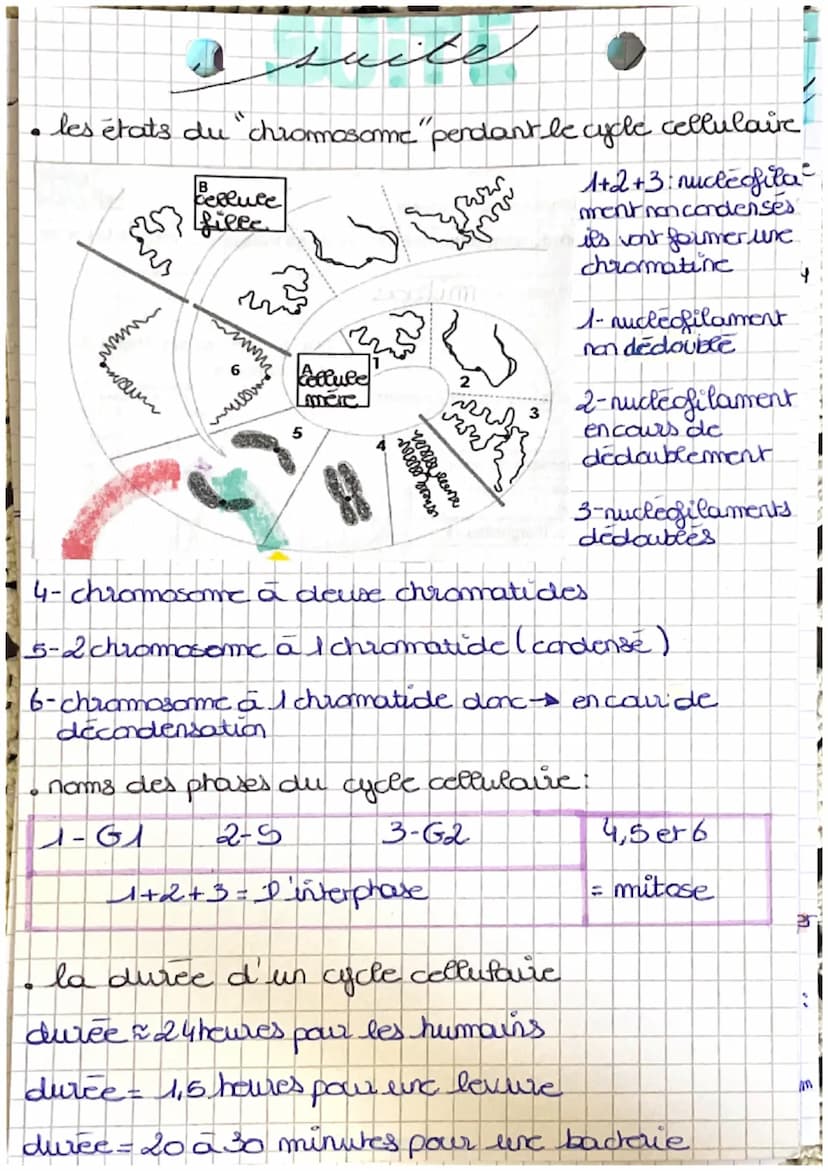 suite
• les états du "chromosome" pendant le cycle cellulaire
B
cellule
fille
A
cellule
mère
1
2
3
4
5
6
1+2+3 : nucléofila-
ment non condensés
ils vont former une
chromatine
1- nucléofilament
non dédoublé
2-nucléofilament
en cours de
dédoublement
3-nucléofilaments
dédoublés
4- chromosome à deuse chromatides
5-2 chromosome à 1 chromatide (condensé)
6-chromosome à 1 chromatide donc → en cour de
décondensation
• noms des phases du cycle cellulaire :
1-G1 2-S 3-G2 4,5 et 6
1+2+3 = l'interphase = mitose
• la durée d'un cycle cellulaire
durée ≈ 24 heures pour les humains
durée = 1,5 heures pour une levure
durée = 20 à 30 minutes pour une bacterie